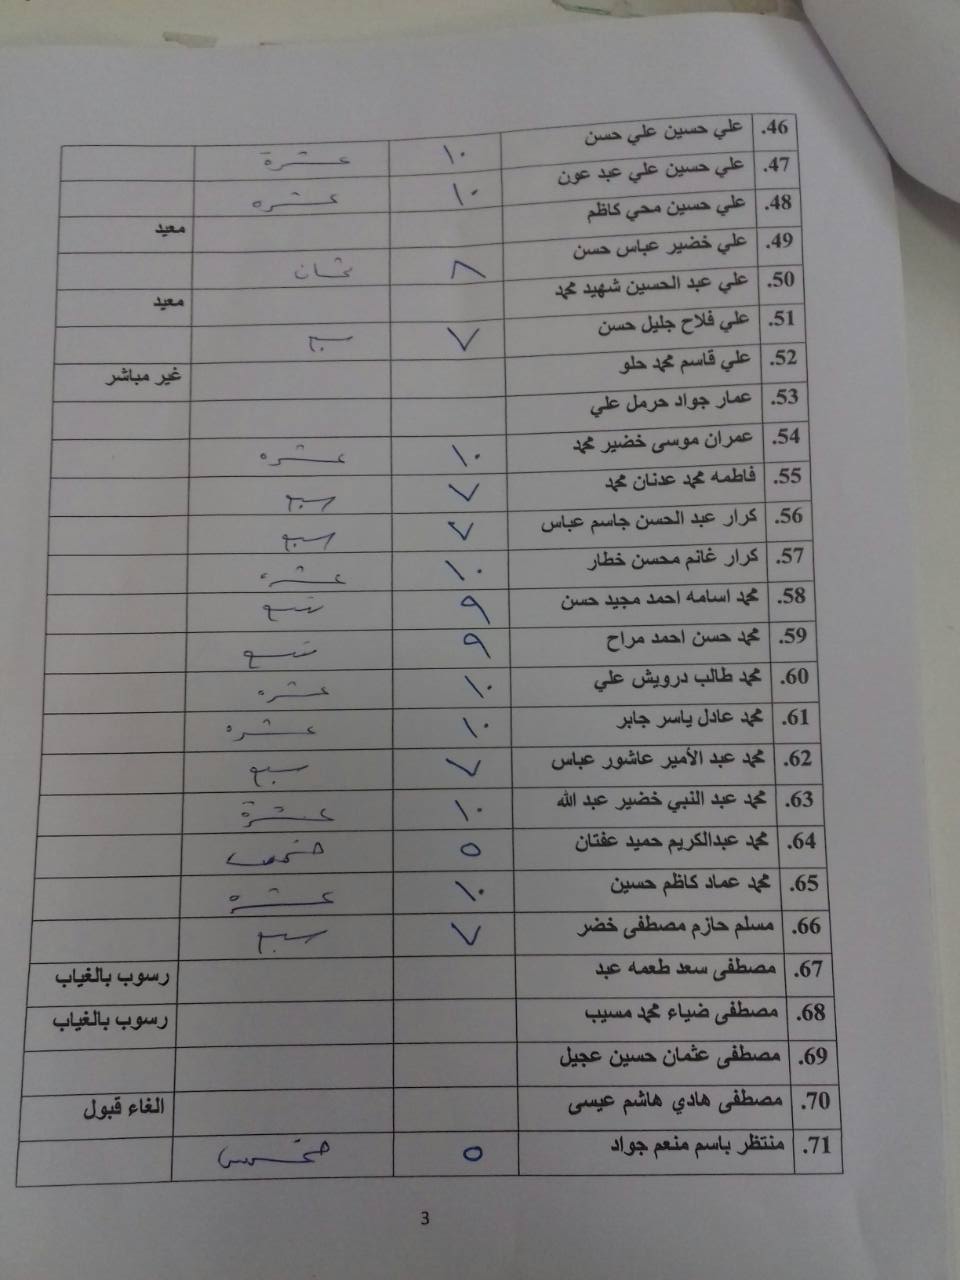 46. علي حسين علي حسن ١٠ عشرة
47. علي حسين علي عبد عون ١٠ عشره
48. علي حسين محي كاظم معيد
49. علي خضير عباس حسن ٨ ثمان
50. علي عبد الحسين شهيد محمد معيد
51. علي فلاح جليل حسن ٧ سبع
52. علي قاسم محمد حلو غير مباشر
53. عمار جواد حرمل علي
54. عمران موسى خضير محمد ١٠ عشره
55. فاطمه محمد عدنان محمد ٧ سبع
56. كرار عبد الحسن جاسم عباس ٧ سبع
57. كرار غانم محسن خطار ١٠ عشره
58. محمد اسامه احمد مجيد حسن ٩ تسع
59. محمد حسن احمد مراح ٩ تسع
60. محمد طالب درويش علي ١٠ عشره
61. محمد عادل ياسر جابر ١٠ عشره
62. محمد عبد الأمير عاشور عباس ٧ سبع
63. محمد عبد النبي خضير عبد الله ١٠ عشرة
64. محمد عبدالكريم حميد عفتان ٥ خمس
65. محمد عماد كاظم حسين ١٠ عشره
66. مسلم حازم مصطفى خضر ٧ سبع
67. مصطفى سعد طعمه عبد رسوب بالغياب
68. مصطفى ضياء محمد مسيب رسوب بالغياب
69. مصطفى عثمان حسين عجيل
70. مصطفى هادي هاشم عيسى الغاء قبول
71. منتظر باسم منعم جواد ٥ خمس
3